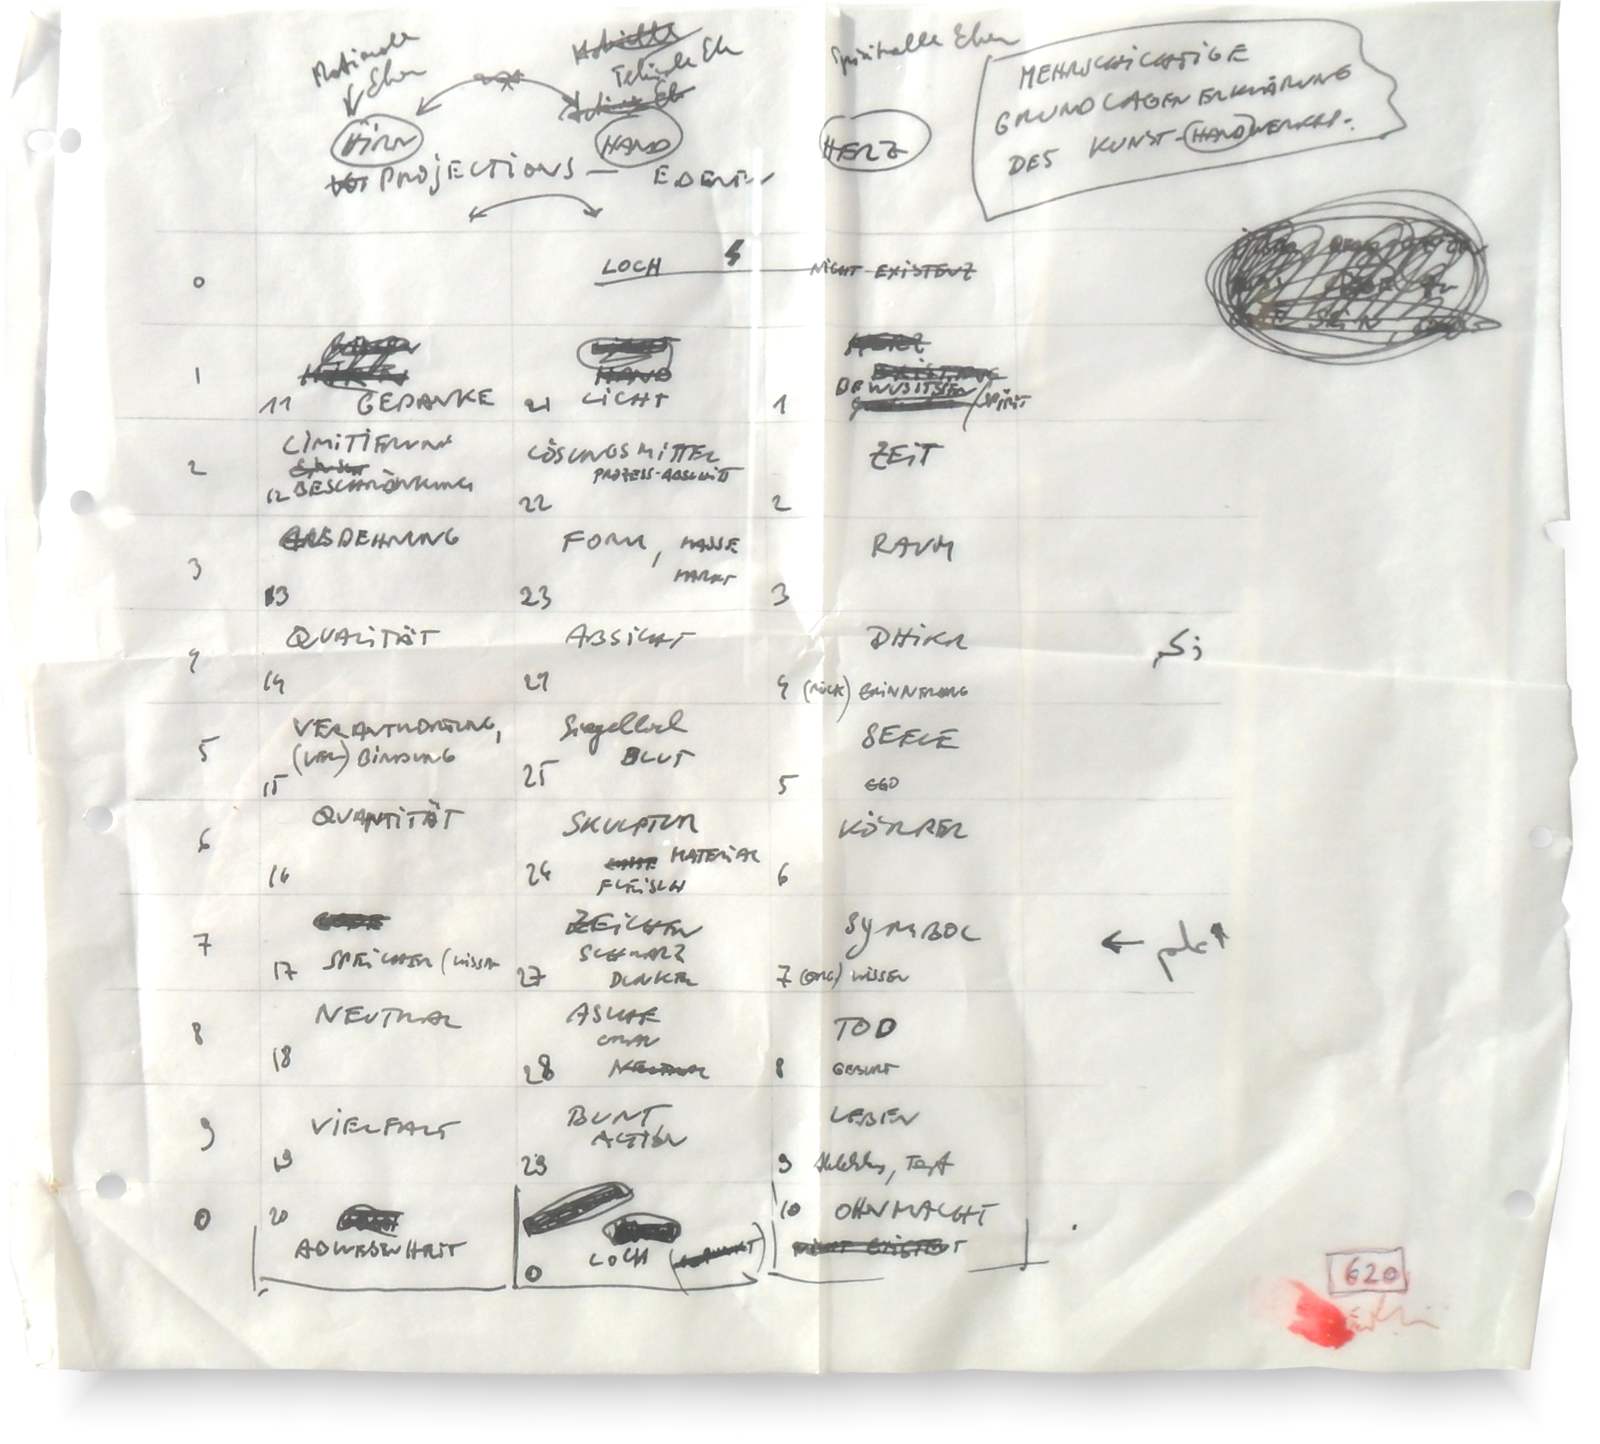 Spirituelle Eben
Ebene
HIRN
HAND
HERZ
MEHRSCHICHTIGE
GRUNDLAGENERKLÄRUNG
DES KUNST-HANDWERKES.
PROJECTIONS — EBENEN
0 LOCH NICHT EXISTENZ
1
HAND
11 GEDANKE 21 LICHT 1 BEWUSSTSEIN / SPIRIT
2 LIMITIERUNG LÖSUNGSMITTEL ZEIT
PROZESS-ABSCHNITT
12 BESCHRÄNKUNG 22 2
3 AUSDEHNUNG FORM, MASSE RAUM
MARKT
13 23 3
4 QUALITÄT ABSICHT DHIKR
14 24 4 (RÜCK) ERINNERUNG
5 VERANTWORTUNG, Siegellack SEELE
(VER) BINDUNG BLUT
15 25 5 EGO
6 QUANTITÄT SKULPTUR KÖRPER
MATERIAL
16 26 FLEISCH 6
7 ZEICHEN SYMBOL
SCHWARZ
17 SPEICHER (WISSEN 27 DUNKEL 7 WISSEN
8 NEUTRAL ASCHE TOD
18 28 NEUTRAL 8 GEBURT
9 VIELFALT BUNT LEBEN
ACTION
19 29 9 , TEXT
0 20 10 OHNMACHT
ABWESENHEIT 0 LOCH
620